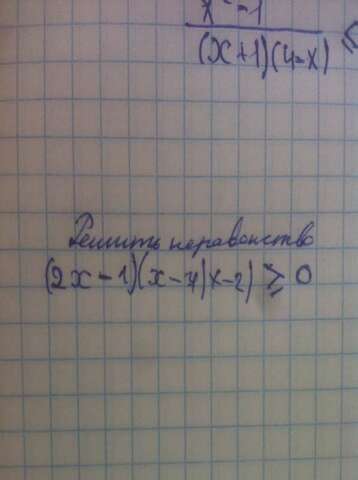 x² - 1
(x+1)(4-x) ≤
Решить неравенство
(2x-1)(x-4)(x-2) ≥ 0